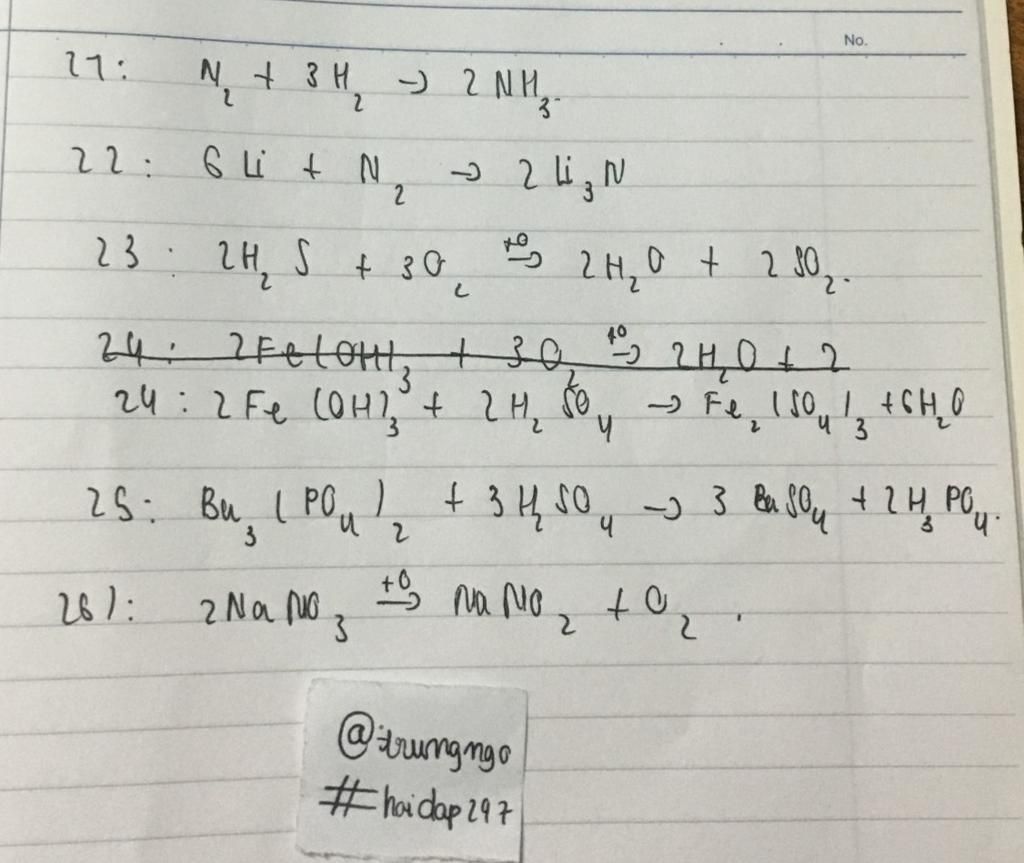 No.
21: N₂ + 3H₂ → 2NH₃.
22: 6Li + N₂ → 2Li₃N
23: 2H₂S + 3O₂ t⁰→ 2H₂O + 2SO₂.
24: 2Fe(OH)₃ + 3O₂ t⁰→ 2H₂O + 2
24: 2Fe(OH)₃ + 2H₂SO₄ → Fe₂(SO₄)₃ + 6H₂O
25: Ba₃(PO₄)₂ + 3H₂SO₄ → 3BaSO₄ + 2H₃PO₄.
26): 2NaNO₃ t⁰→ NaNO₂ + O₂.
@itrungngo
#hoidap297